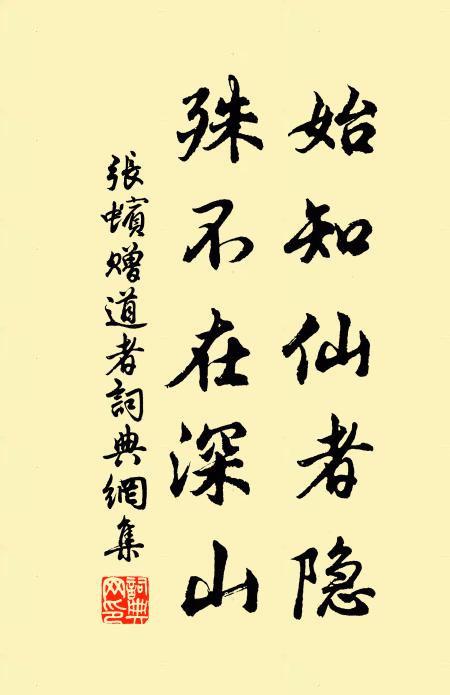 始知仙者隐
殊不在深山
張蠙赠道者詞典網集
詞典網印